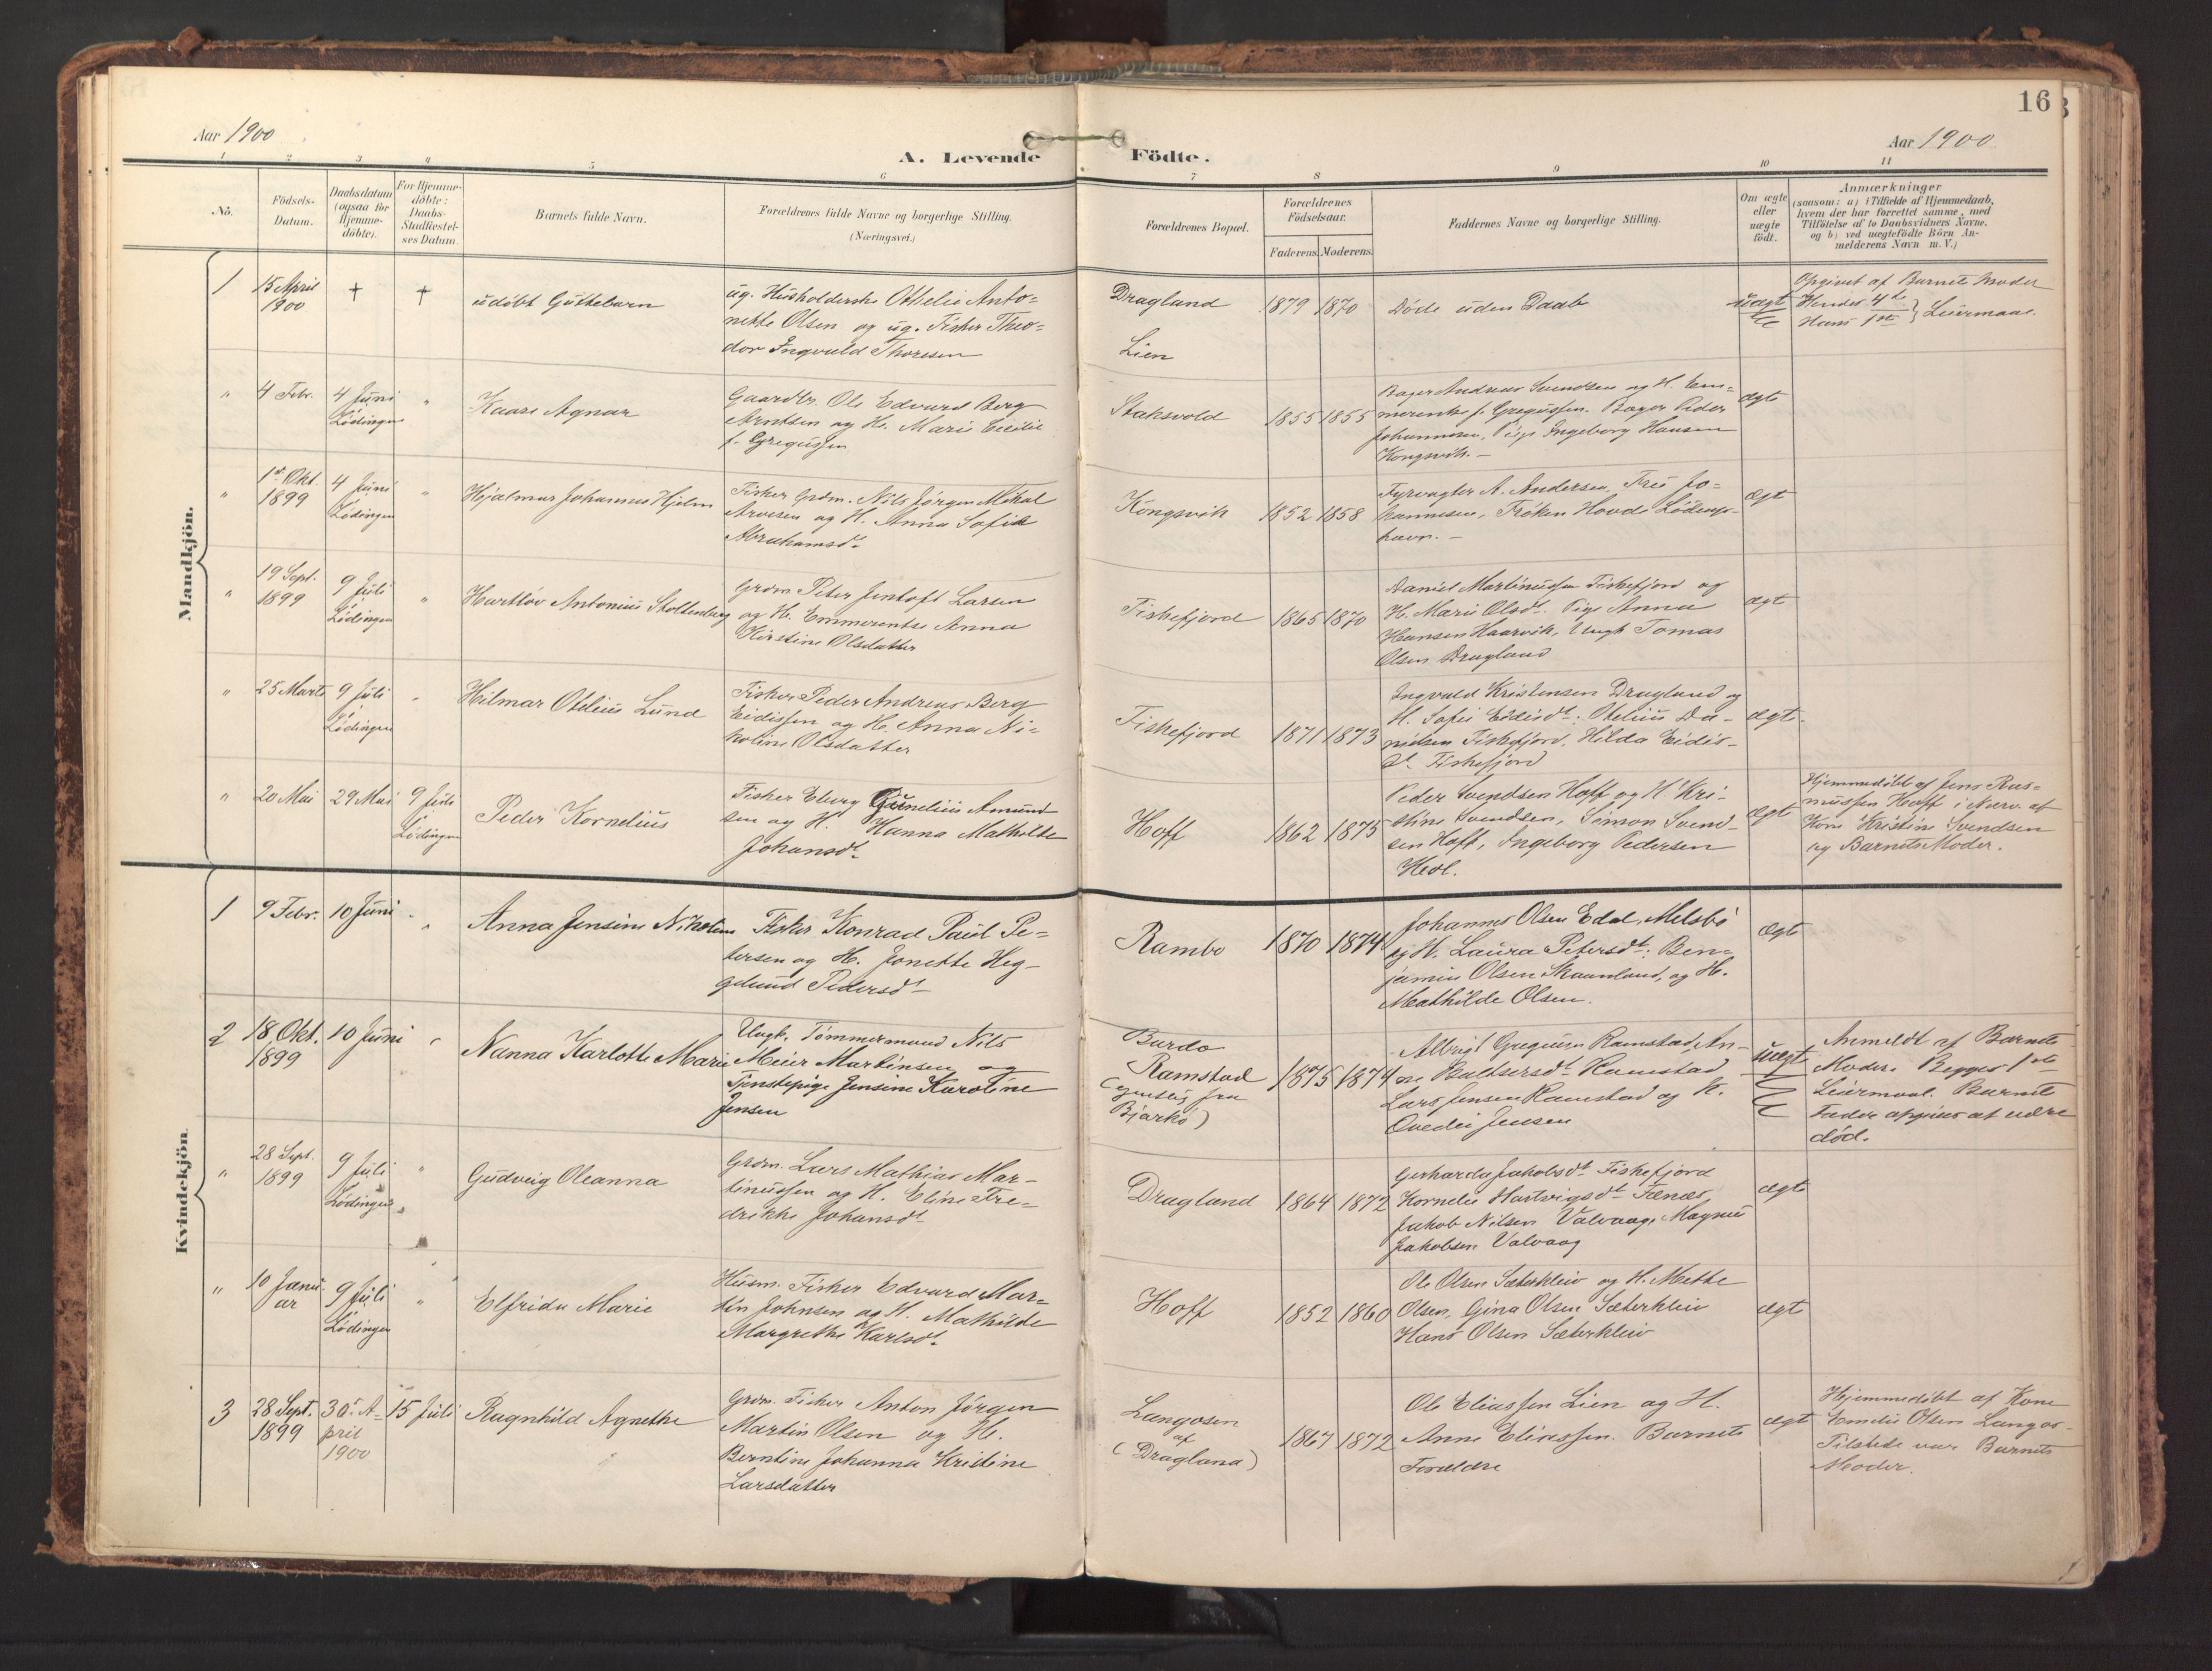 16
Aar 1900
A. Levende Födte.
Aar 1900
1 2 3 4 5 6 7 8 9 10 11
No.
Födsels-Datum.
Daabsdatum (ogsaa for Hjemme-döbte).
For Hjemme-döbte: Daabs-Stadfæstel-ses Datum.
Barnets fulde Navn.
Forældrenes fulde Navne og borgerlige Stilling.
(Næringsvei.)
Forældrenes Bopæl.
Forældrenes Födselsaar.
Faderens. Moderens.
Faddernes Navne og borgerlige Stilling.
Om ægte eller uægte födt.
Anmærkninger
(saasom: a) i Tilfælde af Hjemmedaab, hvem der har forrettet samme, med Tilföielse af to Daabsvidners Navne, og b) ved uægtefödte Börn An-melderens Navn m. V.)
Mandkjön.
1
15 April
1900
†
†
udöbt Guttebarn
ug. Husholderske Ottelie Anto-
nette Olsen og ug. Fisker Theo-
dor Ingvald Thoresen
Dragland
Lien
1879 1870
Döde uden Daab
uægt
Opgivet af Barnets Moder
Hendes 4de
Hans 1ste } Leiermaal.
"
4 Febr.
4 Juni
Lödingen
"
Kaare Agnar
Gaardbr. Ole Edvard Berg
Arntsen og H. Marie Cecilie
f. Gregussen
Staksvold
1855 1855
Bager Andreas Svendsen og H. Em-
merentse f. Gregussen. Bager Peder
Johannesen, Pige Ingeborg Hansen
Kongsvik. –
ægte
"
1st Okt.
1899
4 Juni
Lödingen
"
Hjalmar Johannes Hjelm
Fisker Grdm. Nils Jörgen Mikal
Arvesen og H. Anna Sofie
Abrahamsdt.
Kongsvik
1852 1858
Fyrvogter A. Andersen, Fru Jo-
hannesen, Fröken Hovde Lödings-
havn. –
ægt
"
19 Sept.
1899
9 Juli
Lödingen
"
Hartlöv Antonius Stoltenberg
Grdm. Peter Jentoft Larsen
og H. Emmerentse Anna
Kirstine Olsdatter
Fiskefjord
1865 1870
Daniel Martinussen Fiskefjord og
H. Marie Olsdt. Pige Anna
Hansen Haarvik, Ungk. Tomas
Olsen Dragland
ægt
"
25 Marts
9 Juli
Lödingen
"
Hilmar Otelius Lund
Fisker Peder Andreas Berg
Eidissen og H. Anna Ni-
koline Olsdatter
Fiskefjord
1871 1873
Ingvald Kristensen Dragland og
H. Sofie Eidisdt. Otelius Da-
nielsen Fiskefjord, Hilda Eidis-
dt. Fiskefjord
ægte
"
20 Mai
29 Mai
9 Juli
Lödingen
Peder Kornelius
Fisker Eberg Cornelius Amund
sen og H. Hanna Mathilde
Johansdt.
Hoff
1862 1875
Peder Svendsen Hoff og H. Kri-
stine Svendsen, Simon Svend-
sen Hoff, Ingeborg Pedersen
Heol.
ægt
Hjemmedöbt af Jens Ras-
mussen Hoff i Nærv. af
Kone Kristine Svendsen
og Barnets Moder.
Kvindekjön.
1
9 Febr.
10 Juni
"
Anna Jensine Nikoline
Fisker Konrad Paul Pe-
tersen og H. Jonette Heg-
gelund Pedersdt
Rambo
1870 1874
Johannes Olsen Edal, Melsbö
og H. Laura Petersdt. Ben-
jamin Olsen Skaanland, og H.
Mathilde Olsen.
ægt
2
18 Okt.
1899
10 Juni
"
Nanna Karlotte Marie
Ungk. Tömmermand Nils
Meier Martinsen og
Tjenstepige Jensine Karoline
Jensen
Burdo
Ramstad
fra
Bjarkö)
1875 1874
Albrigt Gregusen Ramstad, An-
ne Baltsersdt Ramstad
Lars Jensen Ramstad og H.
Ovedie Jensen
uægte
Anmeldt af Barnets
Moder. Begges 1ste
Leiermaal. Barnets
Fader opgives at være
död.
"
28 Sept.
1899
9 Juli
Lödingen
"
Gudveig Oleanna
Grdm. Lars Mathias Mar-
tinussen og H. Eline Fre-
drikke Johansdt
Dragland
1864 1872
Gerharda Jakobsdt Fiskefjord
Kornelie Hartvigsdt Tænæs,
Jakob Nilsen Valvaag, Magnus
Jakobsen Valvaag
ægte
"
10 Janu-
ar
9 Juli
Lödingen
"
Elfrida Marie
Husm. Fisker Edvard Mar-
tin Johnsen og H. Mathilde
Margrethe Karlsdt.
Hoff
1852 1860
Ole Olsen Sæterkleiv og H. Mette
Olsen, Gina Olsen Sæterkleiv
Hans Olsen Sæterkleiv
ægt
3
28 Sept.
1899
30te A-
pril
1900
15 Juli
Ragnhild Agnethe
Grdm. Fisker Anton Jörgen
Martin Olsen og H.
Berntine Johanna Kristine
Larsdatter
Langosen
af
(Dragland)
1867 1872
Ole Eliassen Lien og H.
Anne Eliassen. Barnets
Forældre
ægt
Hjemmedöbt af Kone
Emelie Olsen Langos-
Tilstede var Barnets
Moder.